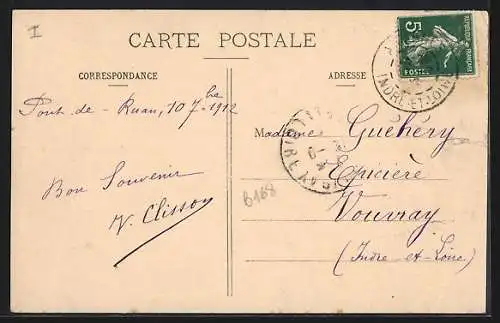 I
CARTE POSTALE
CORRESPONDANCE
ADRESSE
5
POSTES
INDRE-ET-LOIRE
Pont-de-Ruan, 10 7bre 1912
Bon Souvenir
V. Clisson
Madame Guehéry
Epicière
Vouvray
(Indre-et-Loire)
6168